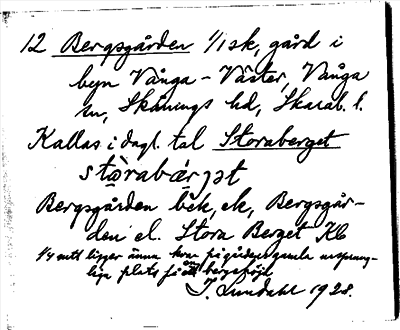 12 Bergsgården 1/1 sk, gård i
byn Vånga - Väster, Vånga
sn, Skånings hd, Skarab. l.
Kallas i dagl. tal Storaberget
stòrabǽrjət
Bergsgården bek, ek, Bergsgår-
den el. Stora Berget Kb
1/4 mtl ligger ännu kvar på gårdens gamla ursprung-
liga plats på en bergshöjd
J. Lundahl 1928.